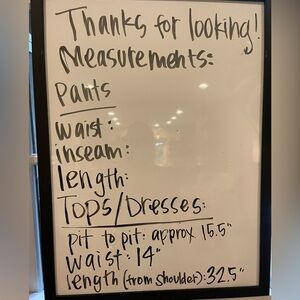 Thanks for looking!
Measurements:
Pants
waist:
inseam:
length:
Tops/Dresses:
pit to pit: approx 15.5"
waist: 14"
length (from shoulder): 32.5"